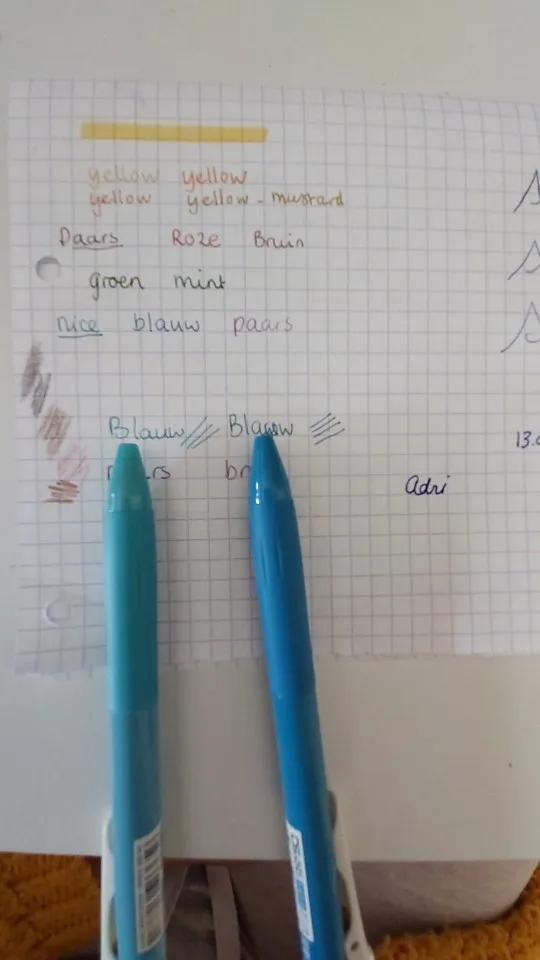 yellow yellow
yellow yellow - mustard
Daars Roze Bruin
groen mint
nice blauw paars
Blauw Blauw
13.
Adri